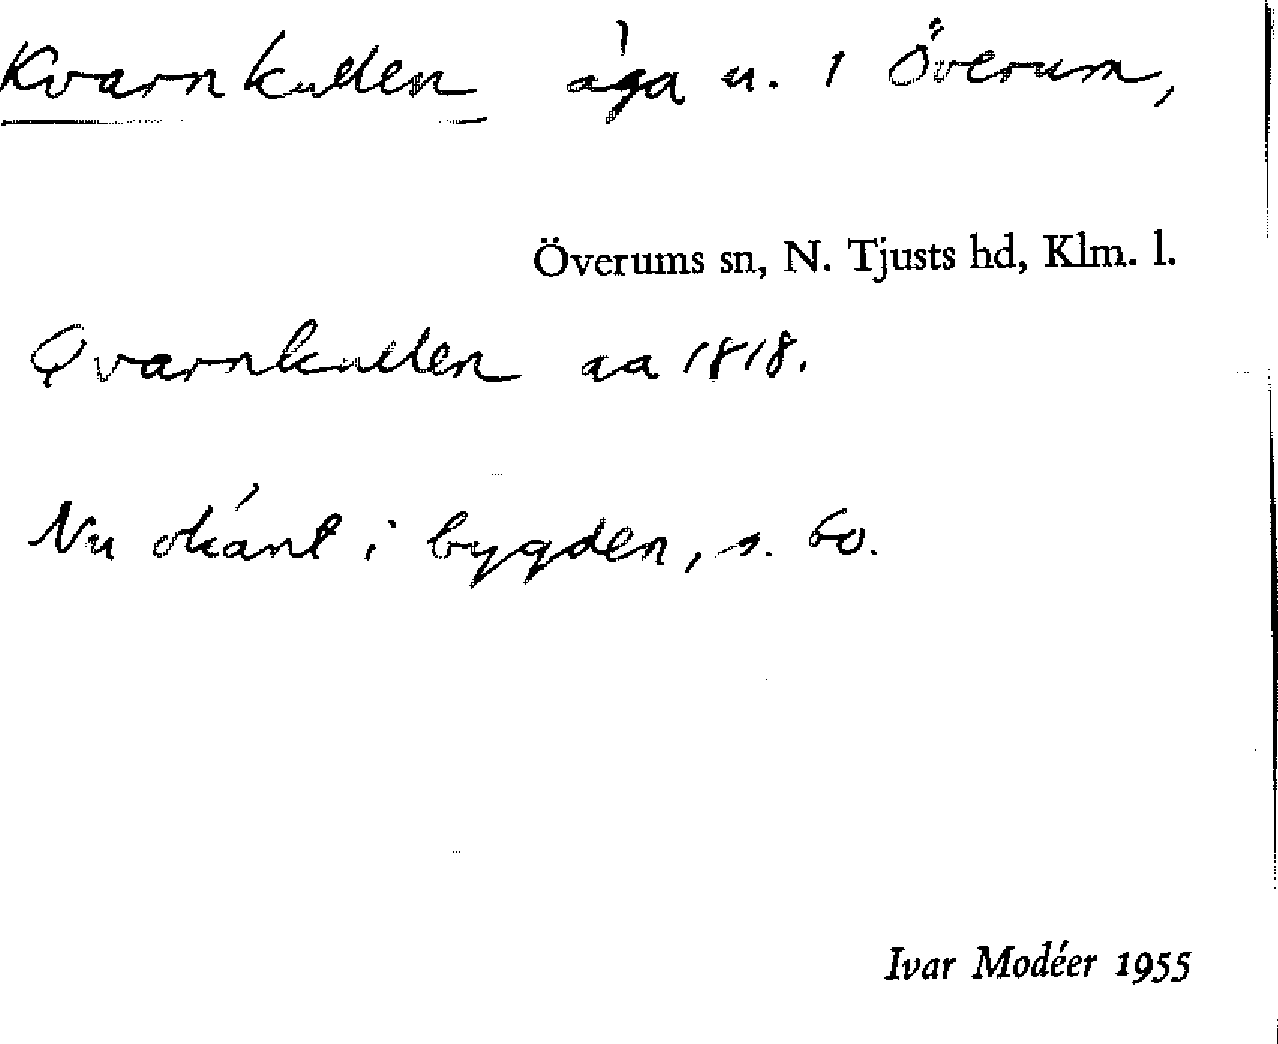 Kvarnkullen äga u. 1 Överum,
Överums sn, N. Tjusts hd, Klm. l.
Qvarnkullen aa 1818.
Nu okänt i bygden, s. 60.
Ivar Modéer 1955